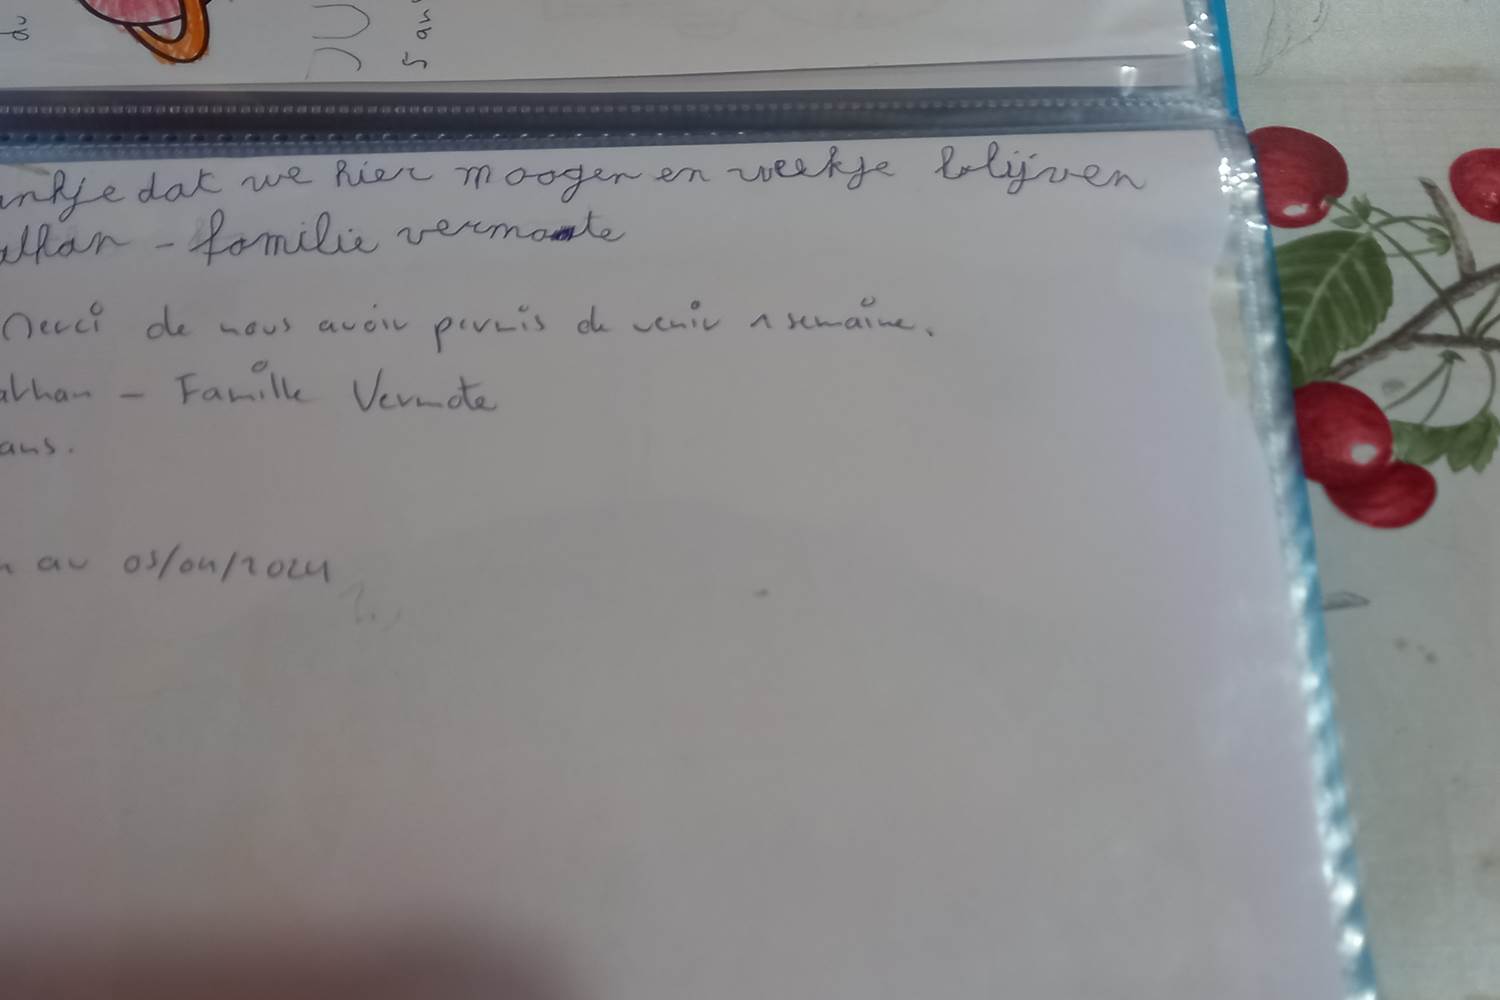 5 an
ankje dat we hier moogen en weekje blijven
athan - familie vermote
Merci de nous avoir permis de venir 1 semaine.
athan - Famille Vermote
ans.
au 05/04/2024